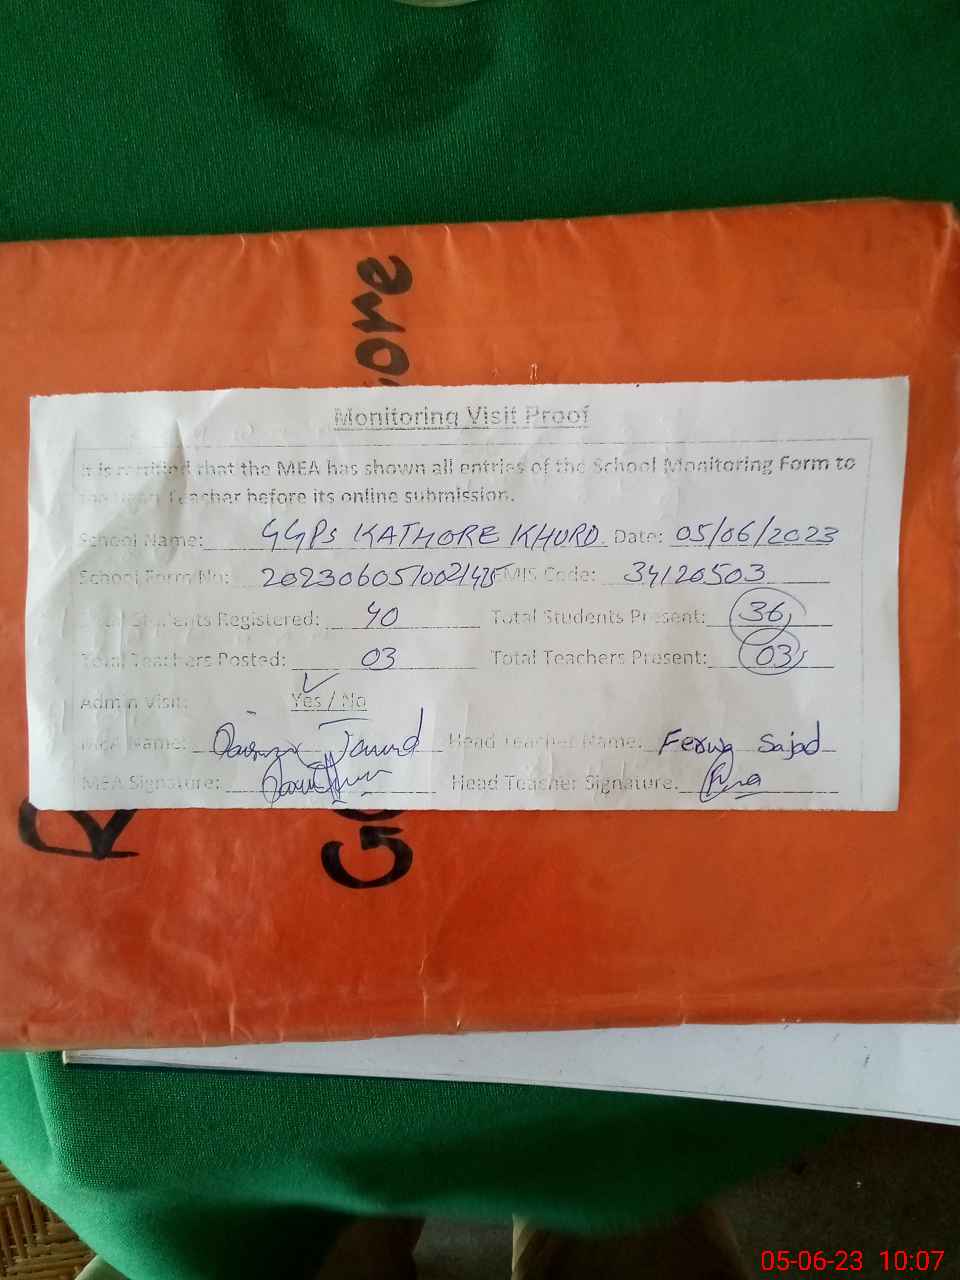 ore
Monitoring Visit Proof
It is certified that the MEA has shown all entries of the School Monitoring Form to
the Head Teacher before its online submission.
School Name: GGPS KATHORE KHURD Date: 05/06/2023
School Form No: EMIS Code: 34120503
Total Students Registered: 40 Total Students Present: 36
Total Teachers Posted: 03 Total Teachers Present: 03
Admin Visit: Yes / No
MEA Name: Head Teacher Name: Ferwa Sajad
MEA Signature: Head Teacher Signature:
R
G
05-06-23 10:07